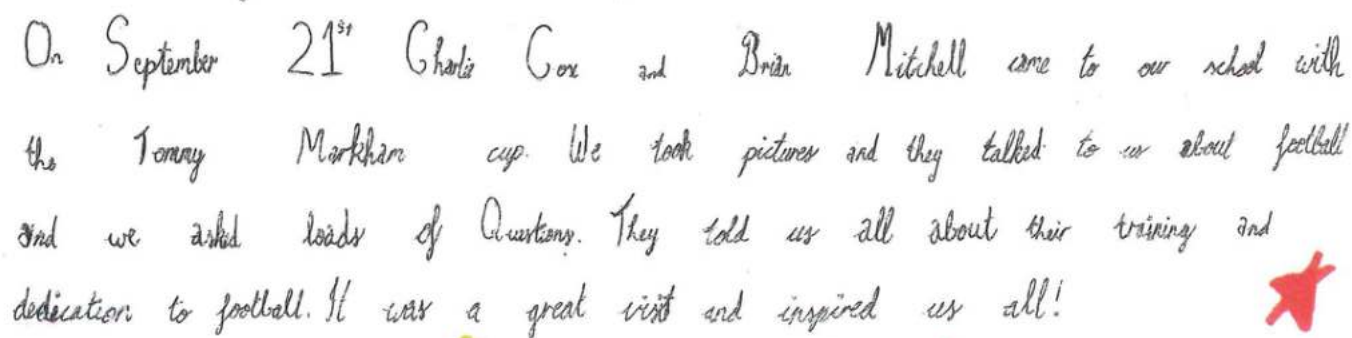 On September 21st Charlie Cox and Brian Mitchell came to our school with
the Tommy Markham cup. We took pictures and they talked to us about football
and we asked loads of Questions. They told us all about their training and
dedication to football. It was a great visit and inspired us all!